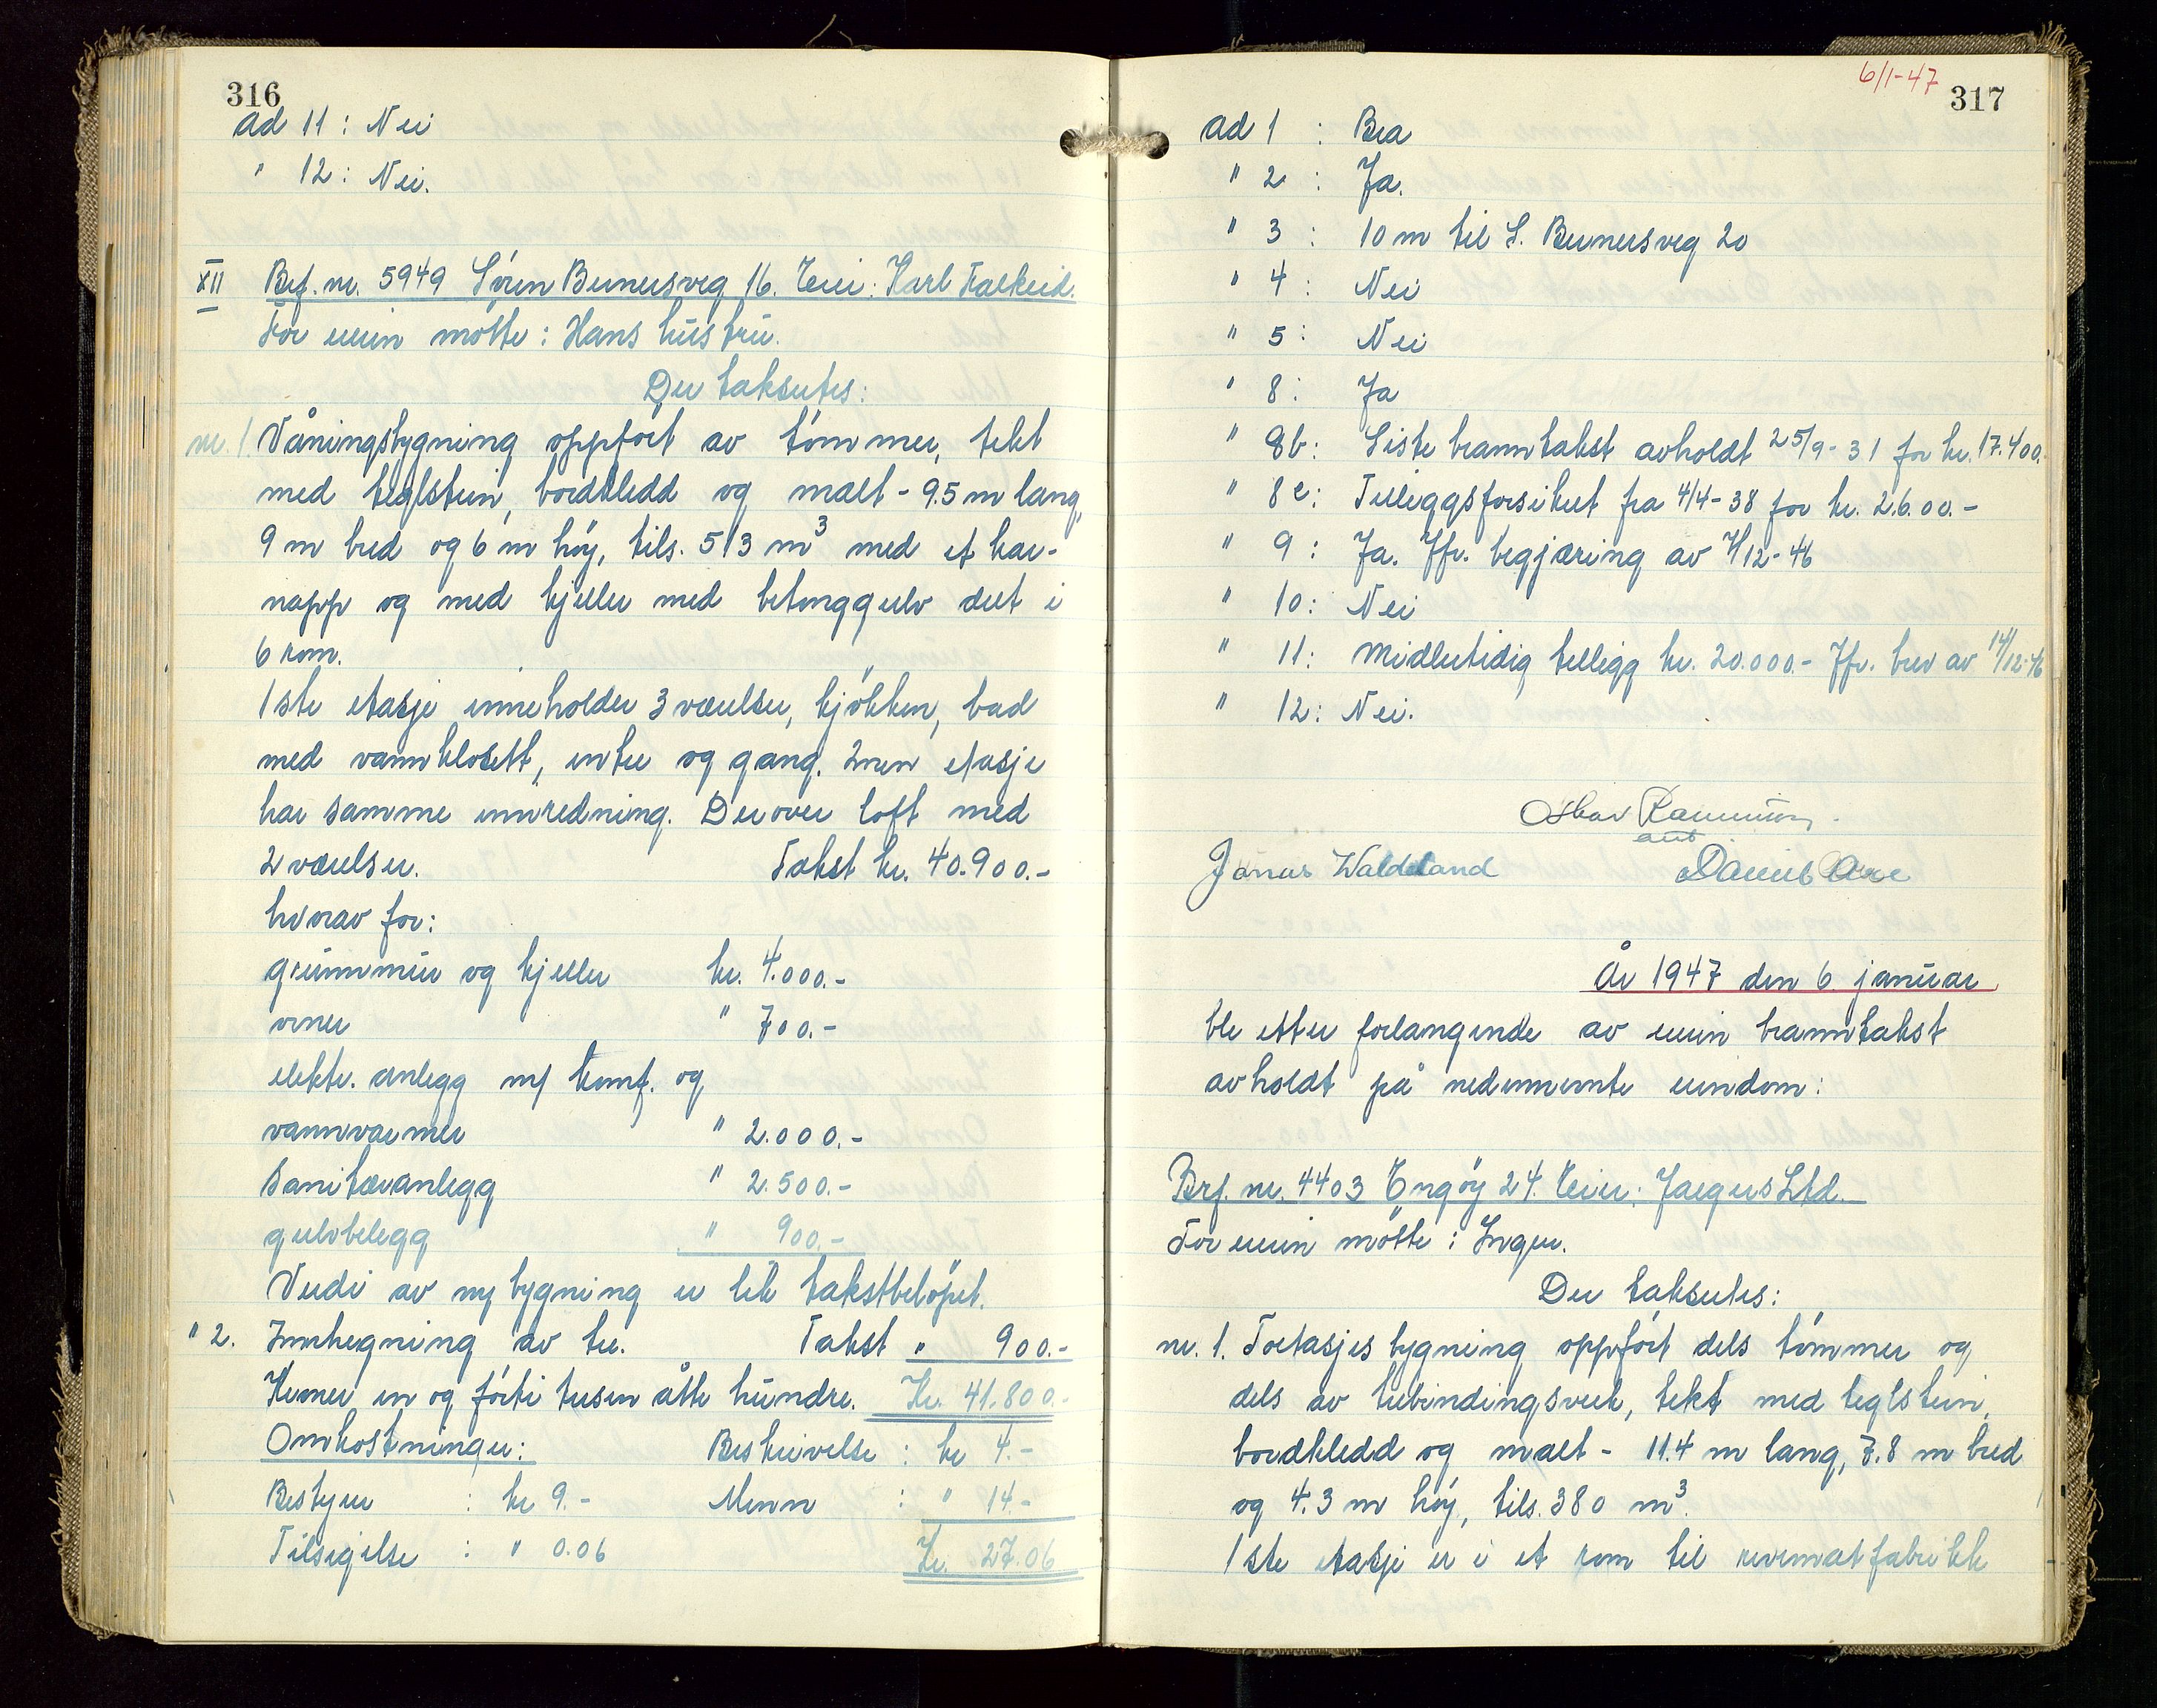 316
ad 11: Nei
" 12: Nei.
XII Brf. nr. 5949 Sören Bernersveg 16. Eier: Karl Falkeid.
For eieren mötte: Hans hustru.
Der takseres:
nr. 1. Våningsbygning oppfört av tömmer, tekt
med teglstein, bordkledd og malt - 9.5 m lang,
9 m bred og 6 m höy, tils. 513 m³ med et kar-
napp og med kjeller med betonggulv delt i
6 rom.
1ste etasje inneholder 3 værelser, kjökken, bad
med vannklosett, entre og gang. 2nen etasje
har samme innredning. Derover loft med
2 værelser. Takst kr. 40.900.-
hvorav for:
grunnmur og kjeller kr. 4.000.-
ovner " 700.-
elektr. anlegg m/ komf. og
vannvarmer " 2.000.-
Sanitæranlegg " 2.500.-
gulvbelegg " 900.-
Verdi av ny bygning er lik takstbelöpet.
" 2. Innhegning av tre. Takst " 900.-
Kroner en og förti tusen åtte hundre. Kr. 41.800.-
Omkostninger: Beskrivelse : kr 4.-
Bestyrer : kr 9.- Menn : " 14.-
Tilsigelse : " 0.06 Kr. 27.06
6/1-47 317
ad 1 : Bra
" 2 : Ja.
" 3 : 10 m til S. Bernersveg 20
" 4 : Nei
" 5 : Nei
" 8 : Ja
" 8b: Siste branntakst avholdt 25/9-31 for kr. 17.400.
" 8c: Tilleggsforsikret fra 4/4-38 for kr. 2.600.-
" 9 : Ja. Jfr. begjæring av 4/12-46
" 10: Nei
" 11: Midlertidig tillegg kr. 20.000.- Jfr. brev av 14/12-46
" 12: Nei.
Jonas Waldeland Daniel Aase
År 1947 den 6. januar
ble etter forlangende av eieren branntakst
avholdt på nedennevnte eiendom:
Brf. nr. 4403 Engöy 24. Eier: Jaegers Ltd.
For eieren mötte: Ingen.
Der takseres:
nr. 1. Toetasjes bygning oppfört dels tömmer og
dels av trebindingsverk, tekt med teglstein,
bordkledd og malt - 11.4 m lang, 7.8 m bred
og 4.3 m höy, tils. 380 m³.
1ste etasje er i et rom til revematfabrikk